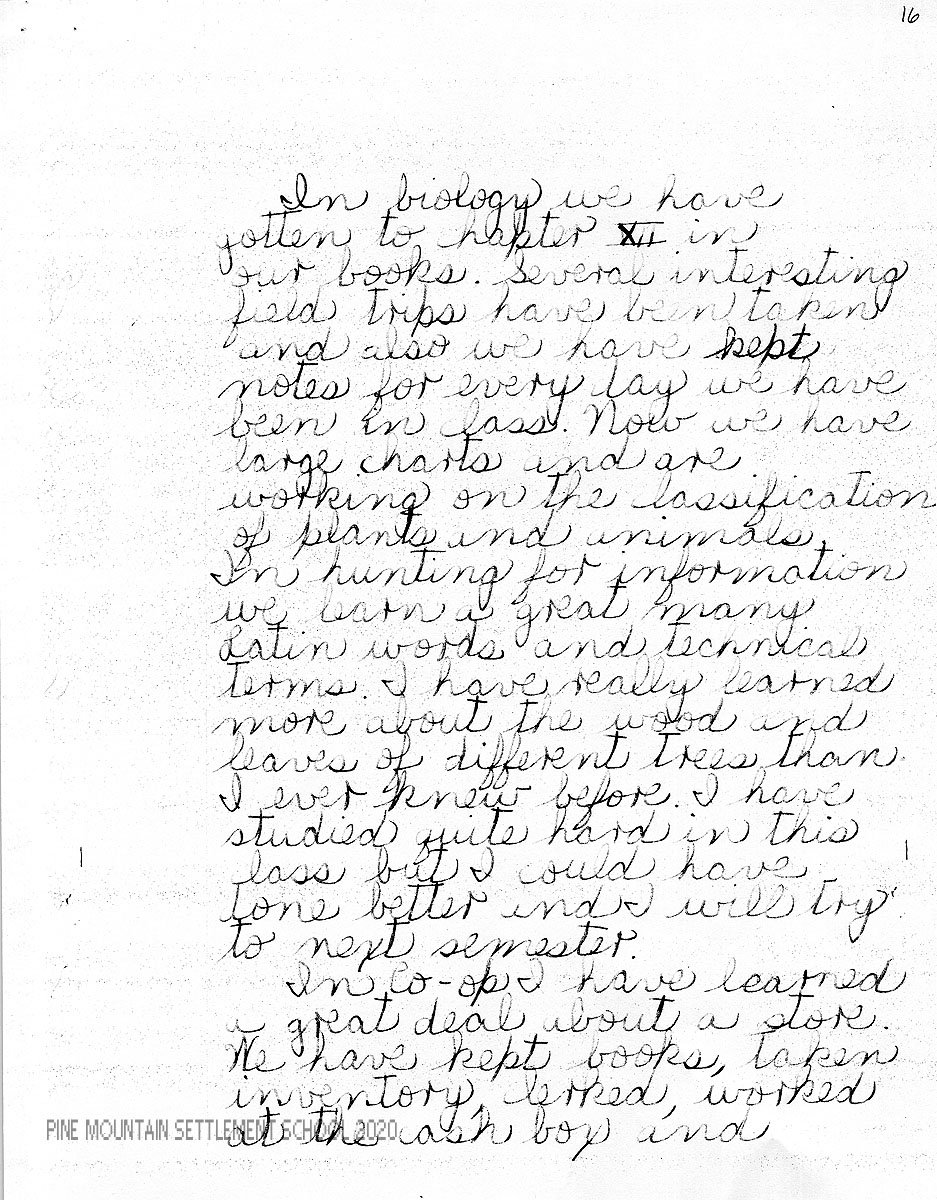 16
In biology we have
gotten to chapter XII in
our books. Several interesting
field trips have been taken
and also we have kept
notes for every day we have
been in class. Now we have
large charts and are
working on the classification
of plants and animals.
In hunting for information
we learn a great many
Latin words and technical
terms. I have really learned
more about the wood and
leaves of different trees than
I ever knew before. I have
studied quite hard in this
class but I could have
done better and I will try
to next semester.
In Co-op I have learned
a great deal about a store.
We have kept books, taken
inventory, clerked, worked
at the cash box and
PINE MOUNTAIN SETTLEMENT SCHOOL 2020